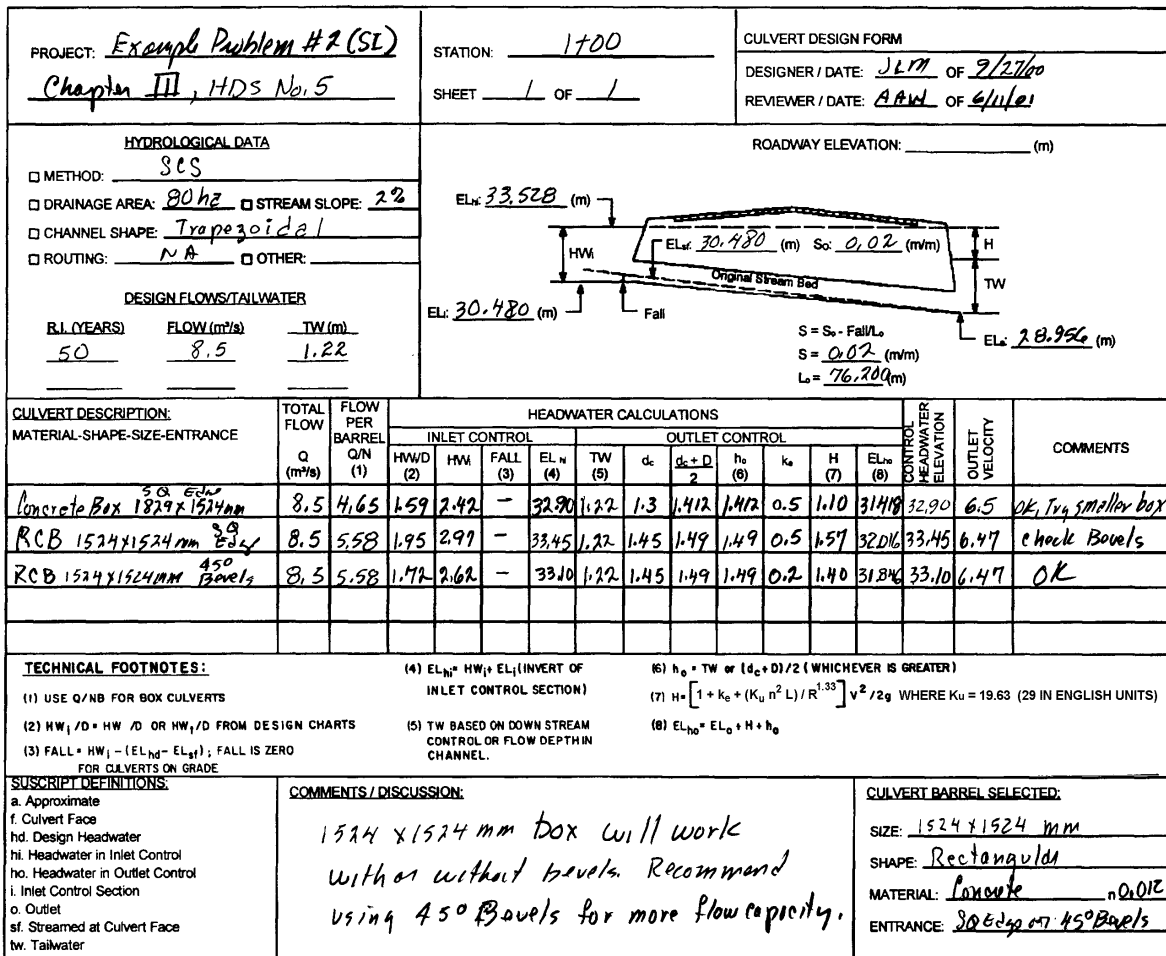 PROJECT: Example Problem #2 (SI)
Chapter III, HDS No. 5
STATION: 1+00
SHEET 1 OF 1
CULVERT DESIGN FORM
DESIGNER / DATE: JLM OF 9/27/00
REVIEWER / DATE: AAW OF 6/11/01
HYDROLOGICAL DATA
METHOD: SCS
DRAINAGE AREA: 80 ha STREAM SLOPE: 2%
CHANNEL SHAPE: Trapezoidal
ROUTING: NA OTHER:
DESIGN FLOWS/TAILWATER
R.I. (YEARS) FLOW (m³/s) TW (m)
50 8.5 1.22
ROADWAY ELEVATION: (m)
ELhi: 33.528 (m)
ELsf: 30.480 (m) So: 0.02 (m/m)
H
HWi
Original Stream Bed
TW
ELi: 30.480 (m)
Fall
S = So - Fall/Lo
S = 0.02 (m/m)
Lo = 76.200 (m)
ELo: 28.956 (m)
CULVERT DESCRIPTION:
MATERIAL-SHAPE-SIZE-ENTRANCE
TOTAL FLOW Q (m³/s)
FLOW PER BARREL Q/N (1)
HEADWATER CALCULATIONS
INLET CONTROL
OUTLET CONTROL
HW/D (2) HWi FALL (3) EL hi (4) TW (5) dc dc + D / 2 ho (6) ke H (7) ELho (8)
CONTROL HEADWATER ELEVATION
OUTLET VELOCITY
COMMENTS
Concrete Box 1829 x 1524mm SQ Edge 8.5 4.65 1.59 2.42 – 32.90 1.22 1.3 1.412 1.412 0.5 1.10 31.418 32.90 6.5 OK, Try smaller box
RCB 1524x1524 mm SQ Edge 8.5 5.58 1.95 2.97 – 33.45 1.22 1.45 1.49 1.49 0.5 1.57 32.016 33.45 6.47 check Bevels
RCB 1524x1524mm 45° Bevels 8.5 5.58 1.72 2.62 – 33.10 1.22 1.45 1.49 1.49 0.2 1.40 31.846 33.10 6.47 OK
TECHNICAL FOOTNOTES:
(1) USE Q/NB FOR BOX CULVERTS
(2) HWi /D = HW /D OR HWi/D FROM DESIGN CHARTS
(3) FALL = HWi - (ELhd - ELsf); FALL IS ZERO
FOR CULVERTS ON GRADE
(4) ELhi = HWi + ELi (INVERT OF
INLET CONTROL SECTION)
(5) TW BASED ON DOWN STREAM
CONTROL OR FLOW DEPTH IN
CHANNEL.
(6) ho = TW or (dc + D)/2 (WHICHEVER IS GREATER)
(7) H = [1 + ke + (Ku n² L) / R^1.33] v²/2g WHERE Ku = 19.63 (29 IN ENGLISH UNITS)
(8) ELho = ELo + H + ho
SUSCRIPT DEFINITIONS:
a. Approximate
f. Culvert Face
hd. Design Headwater
hi. Headwater in Inlet Control
ho. Headwater in Outlet Control
i. Inlet Control Section
o. Outlet
sf. Streamed at Culvert Face
tw. Tailwater
COMMENTS / DISCUSSION:
1524 x 1524 mm box will work
with or without bevels. Recommend
using 45° Bevels for more flow capacity.
CULVERT BARREL SELECTED:
SIZE: 1524 x 1524 mm
SHAPE: Rectangular
MATERIAL: Concrete n 0.012
ENTRANCE: SQ Edge on 45° Bevels